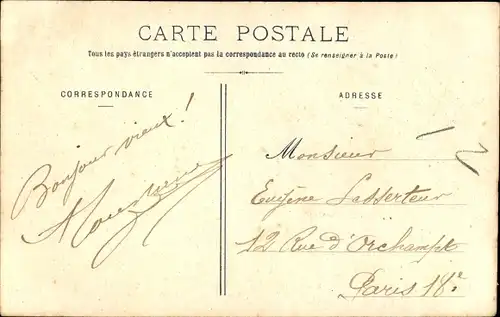 CARTE POSTALE
Tous les pays étrangers n'acceptent pas la correspondance au recto (Se renseigner à la Poste)
CORRESPONDANCE
Bonjour vieux!
ADRESSE
Monsieur
Eugène Lasserteur
12 Rue d'Orchampt
Paris 18.e